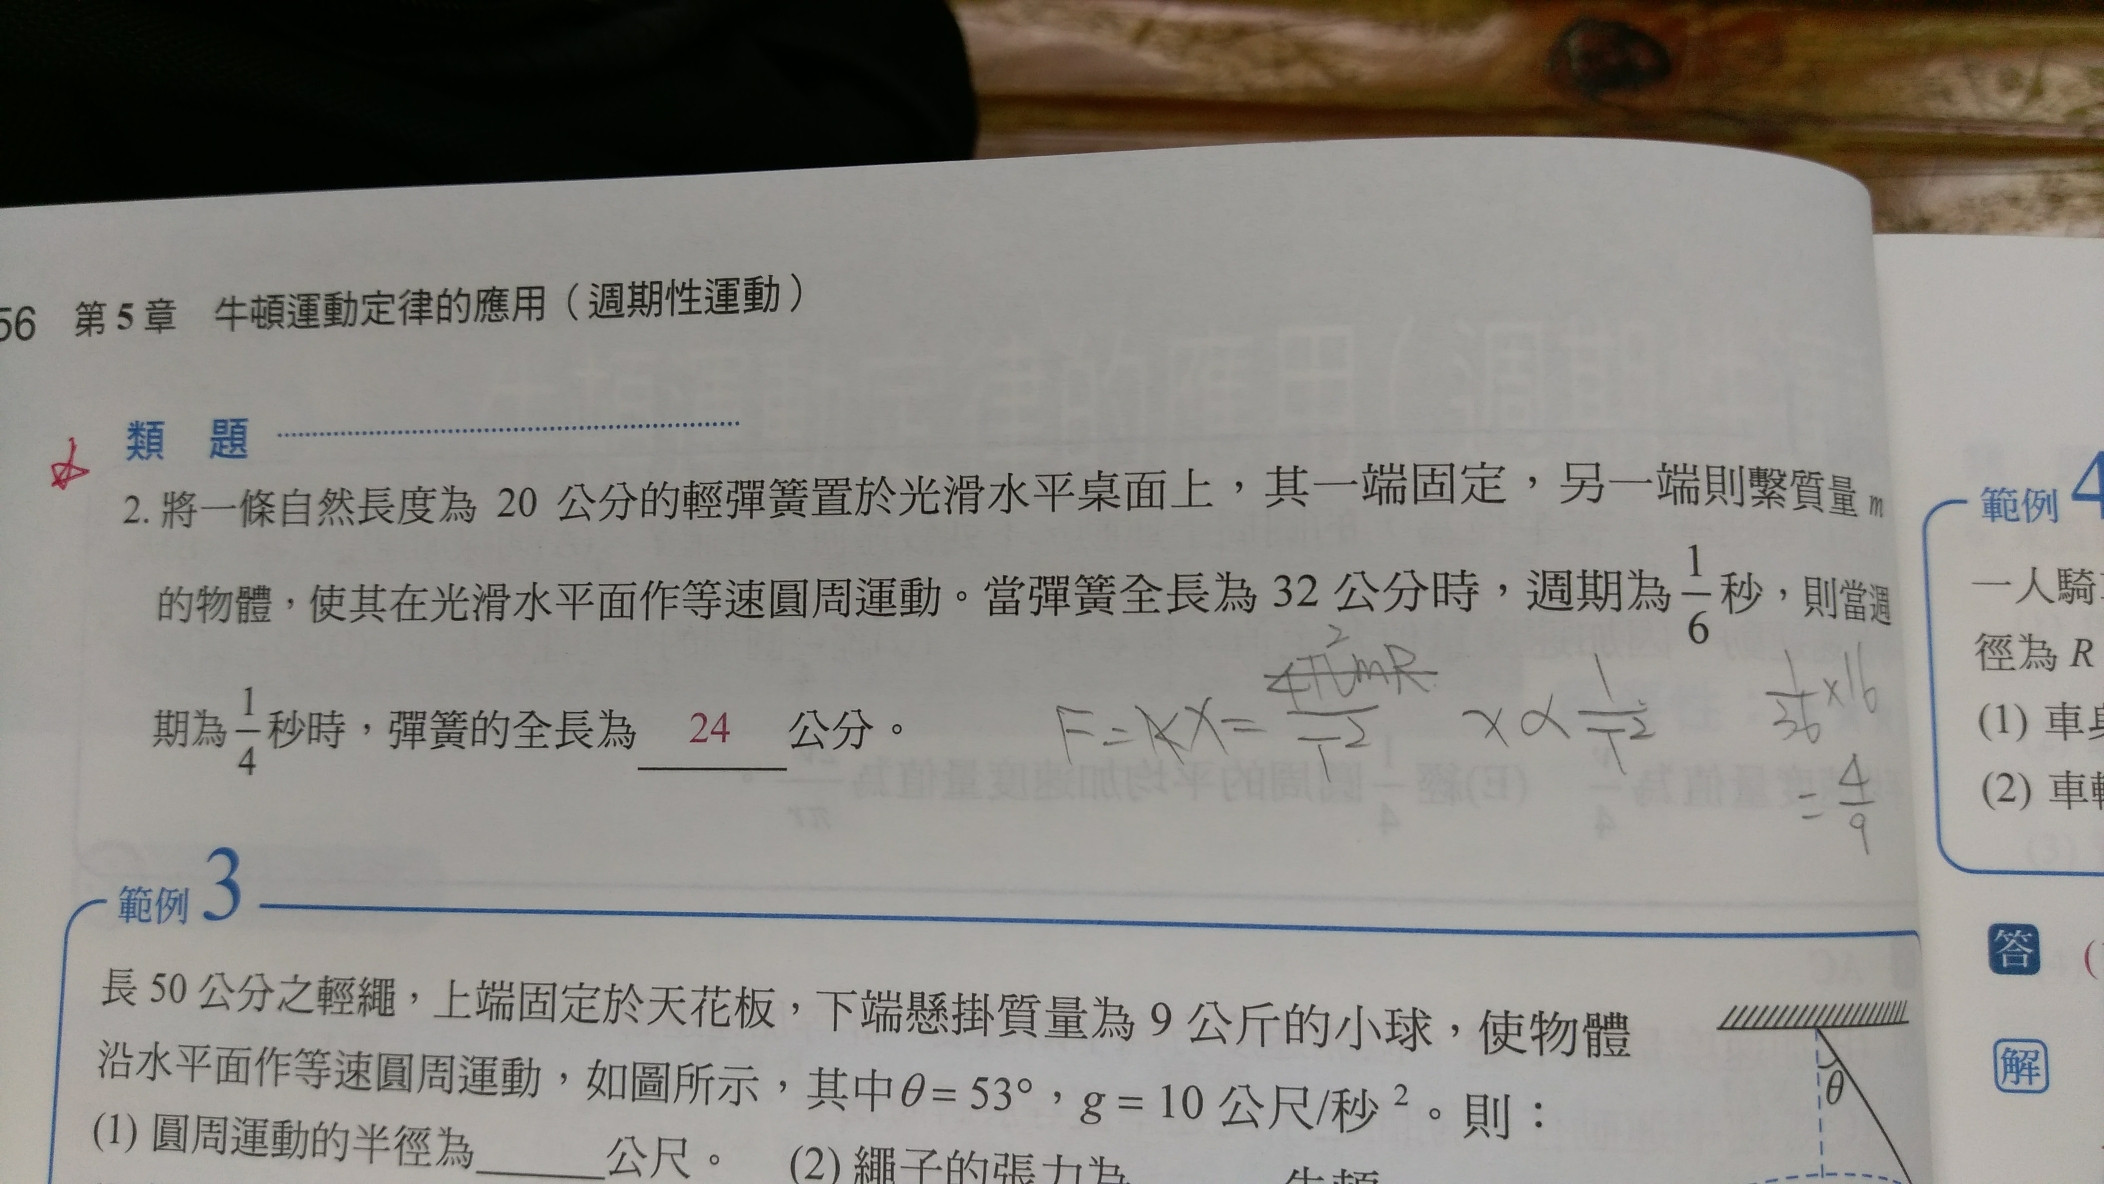 56 第5章 牛頓運動定律的應用(週期性運動)
類 題
2. 將一條自然長度為 20 公分的輕彈簧置於光滑水平桌面上,其一端固定,另一端則繫質量 m
的物體,使其在光滑水平面作等速圓周運動。當彈簧全長為 32 公分時,週期為 1/6 秒,則當週
期為 1/4 秒時,彈簧的全長為 24 公分。
F=kx= 4π²mR/T² x∝1/T² 1/36 ×16
= 4/9
範例 3
長 50 公分之輕繩,上端固定於天花板,下端懸掛質量為 9 公斤的小球,使物體
沿水平面作等速圓周運動,如圖所示,其中θ= 53°,g = 10 公尺/秒²。則:
(1) 圓周運動的半徑為______公尺。 (2) 繩子的張力為
θ
範例 4
一人騎
徑為 R
(1) 車
(2) 車
答 (
解